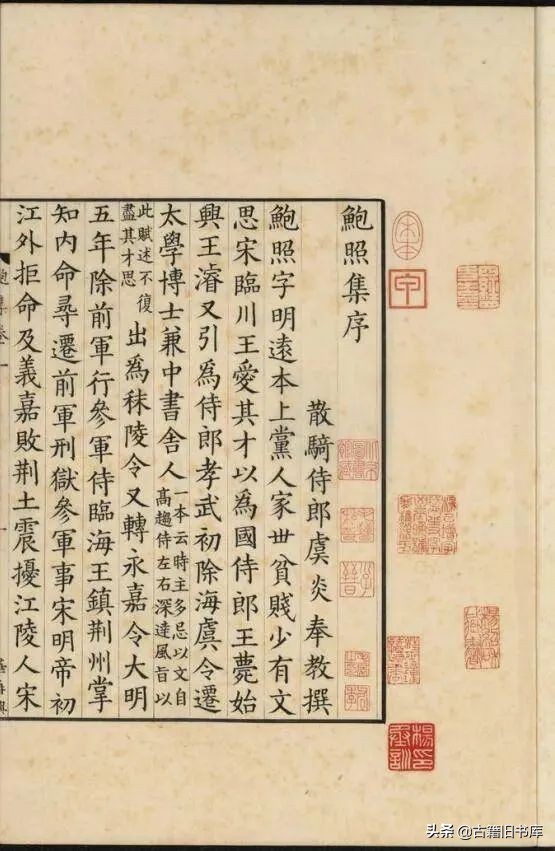 鮑照集序
散騎侍郎虞炎奉教撰
鮑照字明遠本上黨人家世貧賤少有文
思宋臨川王愛其才以為國侍郎王薨始
興王濬又引為侍郎孝武初除海虞令遷
太學博士兼中書舍人一本云時主多忌以文自
高趨侍左右深達風旨以
此賦述不復
盡其才思出為秣陵令又轉永嘉令大明
五年除前軍行參軍侍臨海王鎮荊州掌
知內命尋遷前軍刑獄參軍事宋明帝初
江外拒命及義嘉敗荊土震擾江陵人宋
头条 @古籍旧书库